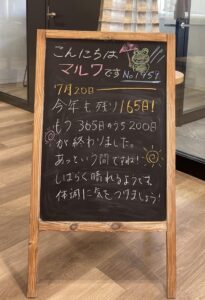 こんにちは
マルワです No1959
7月20日
今年も残り165日!
もう365日のうち200日
が終わりました。
あっという間ですね!
しばらく晴れるようです。
体調に気をつけましょう!